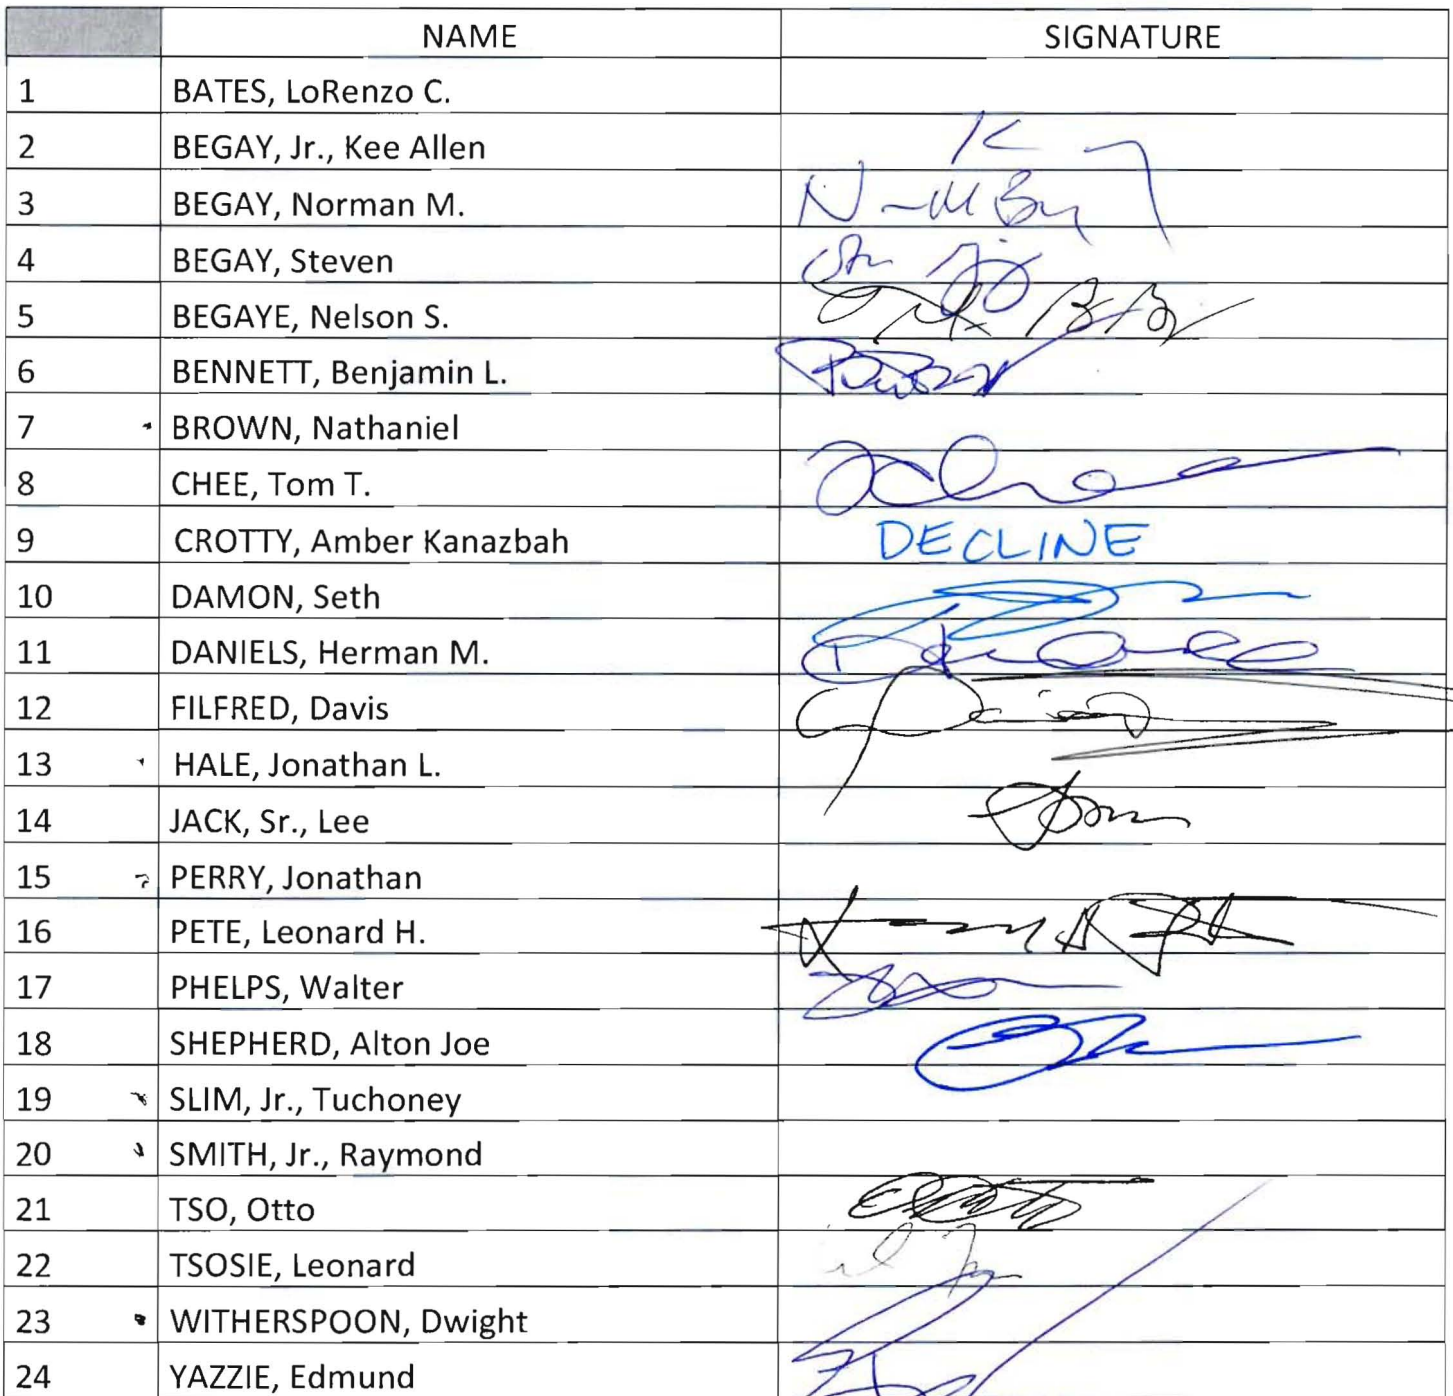 NAME SIGNATURE
1 BATES, LoRenzo C.
2 BEGAY, Jr., Kee Allen
3 BEGAY, Norman M.
4 BEGAY, Steven
5 BEGAYE, Nelson S.
6 BENNETT, Benjamin L.
7 BROWN, Nathaniel
8 CHEE, Tom T.
9 CROTTY, Amber Kanazbah DECLINE
10 DAMON, Seth
11 DANIELS, Herman M.
12 FILFRED, Davis
13 HALE, Jonathan L.
14 JACK, Sr., Lee
15 PERRY, Jonathan
16 PETE, Leonard H.
17 PHELPS, Walter
18 SHEPHERD, Alton Joe
19 SLIM, Jr., Tuchoney
20 SMITH, Jr., Raymond
21 TSO, Otto
22 TSOSIE, Leonard
23 WITHERSPOON, Dwight
24 YAZZIE, Edmund